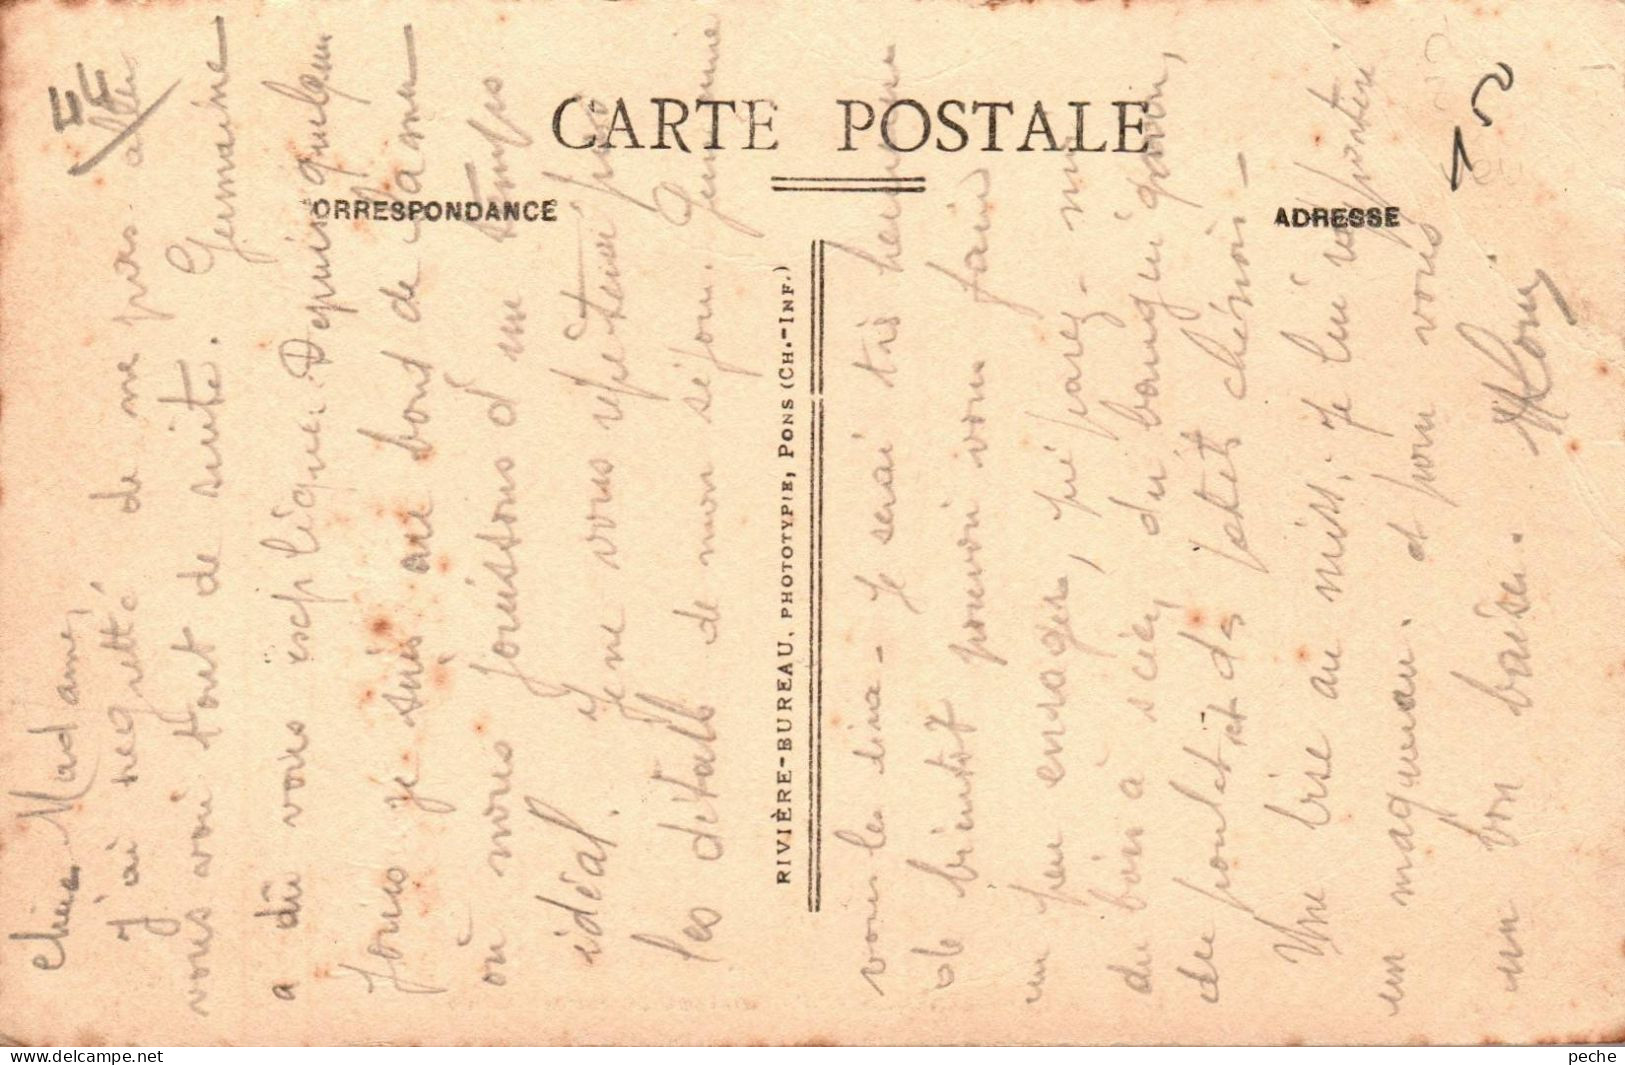 CARTE POSTALE
CORRESPONDANCE
ADRESSE
RIVIÈRE-BUREAU, PHOTOTYPIE, PONS (CH.-INF.)
44
Chère Madame,
J'ai regretté de ne pas aller
vous voir tout de suite. Germaine
a dû vous expliquer. Depuis quelques
jours je suis au bord de la mer
où nous jouissons d'un temps
idéal. Je ne vous
les détails de mon séjour. Germaine
vous les dira - Je serai très heureuse
de bientôt pouvoir vous faire
un peu enrager, préparez-moi
du bois à scier, du
de poulet et des petits chinois -
Une bise au miss; Je lui
un maquereau. et pour vous
un bon baiser.
15
peche